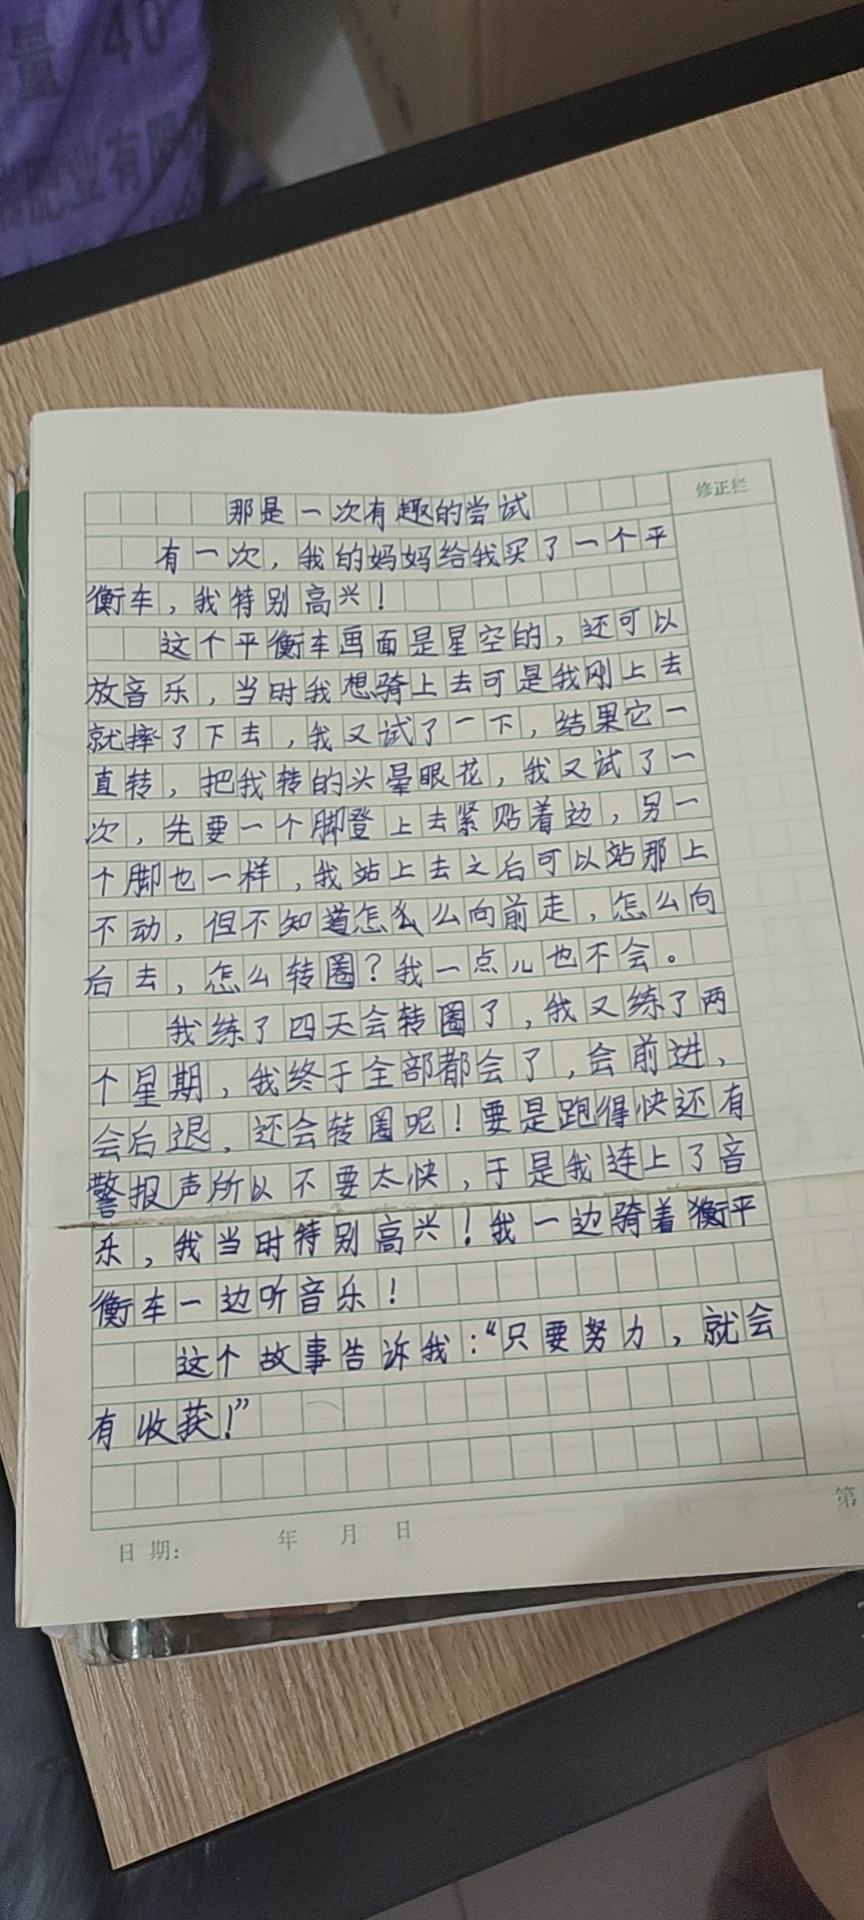 量 40
肥业有限
修正栏
那是一次有趣的尝试
有一次，我的妈妈给我买了一个平
衡车，我特别高兴！
这个平衡车画面是星空的，还可以
放音乐，当时我想骑上去可是我刚上去
就摔了下去，我又试了一下，结果它一
直转，把我转的头晕眼花，我又试了一
次，先要一个脚登上去紧贴着边，另一
个脚也一样，我站上去之后可以站那上
不动，但不知道怎么么向前走，怎么向
后去，怎么转圈？我一点儿也不会。
我练了四天会转圈了，我又练了两
个星期，我终于全部都会了，会前进，
会后退，还会转圈呢！要是跑得快还有
警报声所以不要太快，于是我连上了音
乐，我当时特别高兴！我一边骑着衡平
衡车一边听音乐！
这个故事告诉我：“只要努力，就会
有收获！”
日期： 年 月 日
第